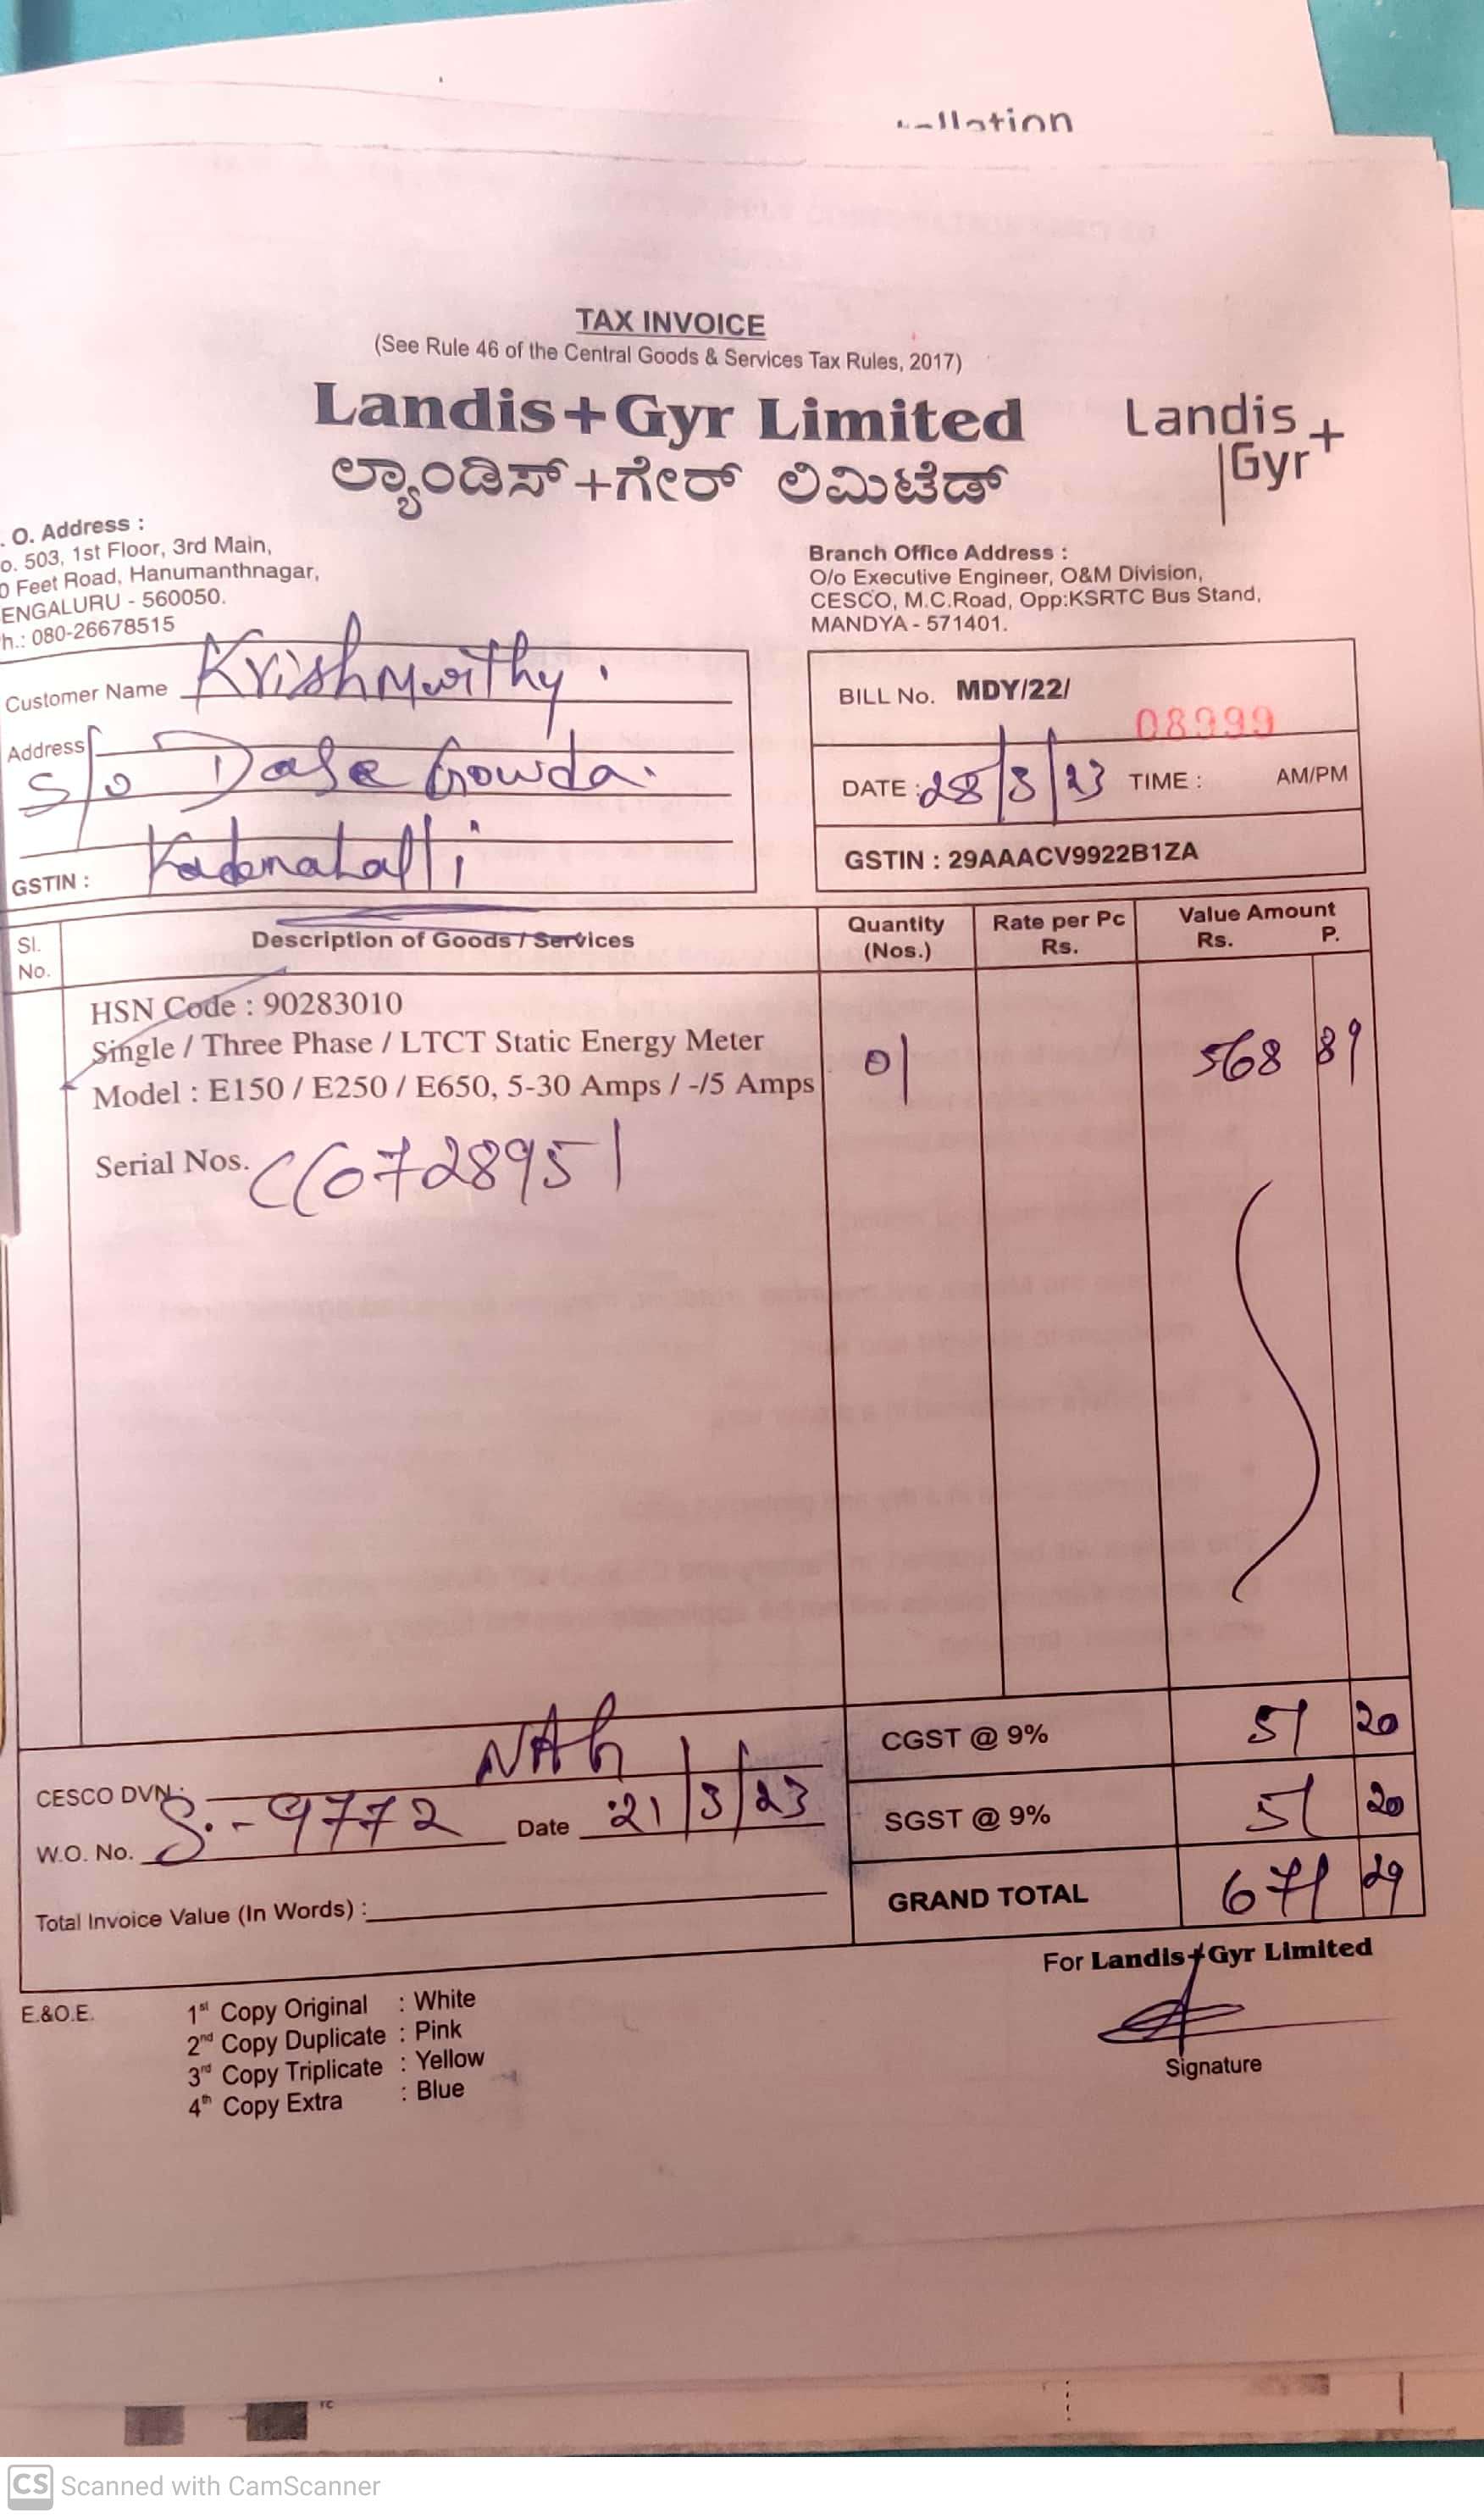 TAX INVOICE
(See Rule 46 of the Central Goods & Services Tax Rules, 2017)
Landis+Gyr Limited
ಲ್ಯಾಂಡಿಸ್+ಗೇರ್ ಲಿಮಿಟೆಡ್
Landis
Gyr+
. O. Address :
o. 503, 1st Floor, 3rd Main,
0 Feet Road, Hanumanthnagar,
ENGALURU - 560050.
h.: 080-26678515
Branch Office Address :
O/o Executive Engineer, O&M Division,
CESCO, M.C.Road, Opp:KSRTC Bus Stand,
MANDYA - 571401.
Customer Name Krishmurthy.
Address
S/o Dase Gowda.
GSTIN :
BILL No. MDY/22/
08999
DATE : 28/3/23 TIME : AM/PM
GSTIN : 29AAACV9922B1ZA
Sl. No. Description of Goods / Services Quantity (Nos.) Rate per Pc Rs. Value Amount Rs. P.
HSN Code : 90283010
Single / Three Phase / LTCT Static Energy Meter 01 568 89
Model : E150 / E250 / E650, 5-30 Amps / -/5 Amps
Serial Nos. CC0728951
CGST @ 9% 51 20
CESCO DVN :
W.O. No. S.-9772 Date 21/3/23
SGST @ 9% 51 20
GRAND TOTAL 671 29
Total Invoice Value (In Words) :
For Landis+Gyr Limited
Signature
E.&O.E.
1st Copy Original : White
2nd Copy Duplicate : Pink
3rd Copy Triplicate : Yellow
4th Copy Extra : Blue
CS Scanned with CamScanner